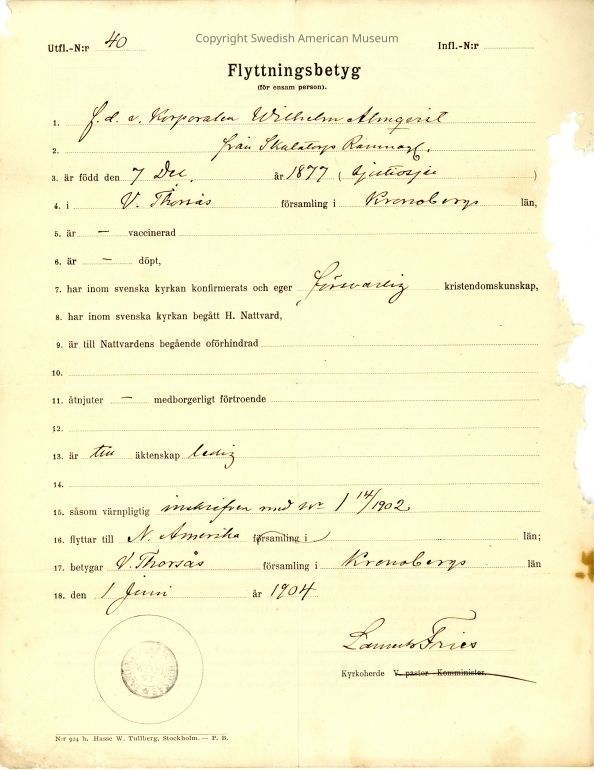 Copyright Swedish American Museum
Utfl.-N:r 40 Infl.-N:r
Flyttningsbetyg
(för ensam person).
1. f. d. v. Korporalen Wilhelm Almqvist
2. från Skatatorp
3. är född den 7 Dec. år 1877 ( sjuttiosju )
4. i V. Thorsås församling i Kronobergs län,
5. är — vaccinerad
6. är — döpt,
7. har inom svenska kyrkan konfirmerats och eger försvarlig kristendomskunskap,
8. har inom svenska kyrkan begått H. Nattvard,
9. är till Nattvardens begående oförhindrad
10.
11. åtnjuter — medborgerligt förtroende
12.
13. är till äktenskap ledig
14.
15. såsom värnpligtig inskrifven med No 1 14/1902
16. flyttar till N. Amerika församling i län;
17. betygar V. Thorsås församling i Kronobergs län
18. den 1 Juni år 1904
Fries
Kyrkoherde V. pastor Komminister.
N:r 914 h. Hasse W. Tullberg, Stockholm. — P. B.